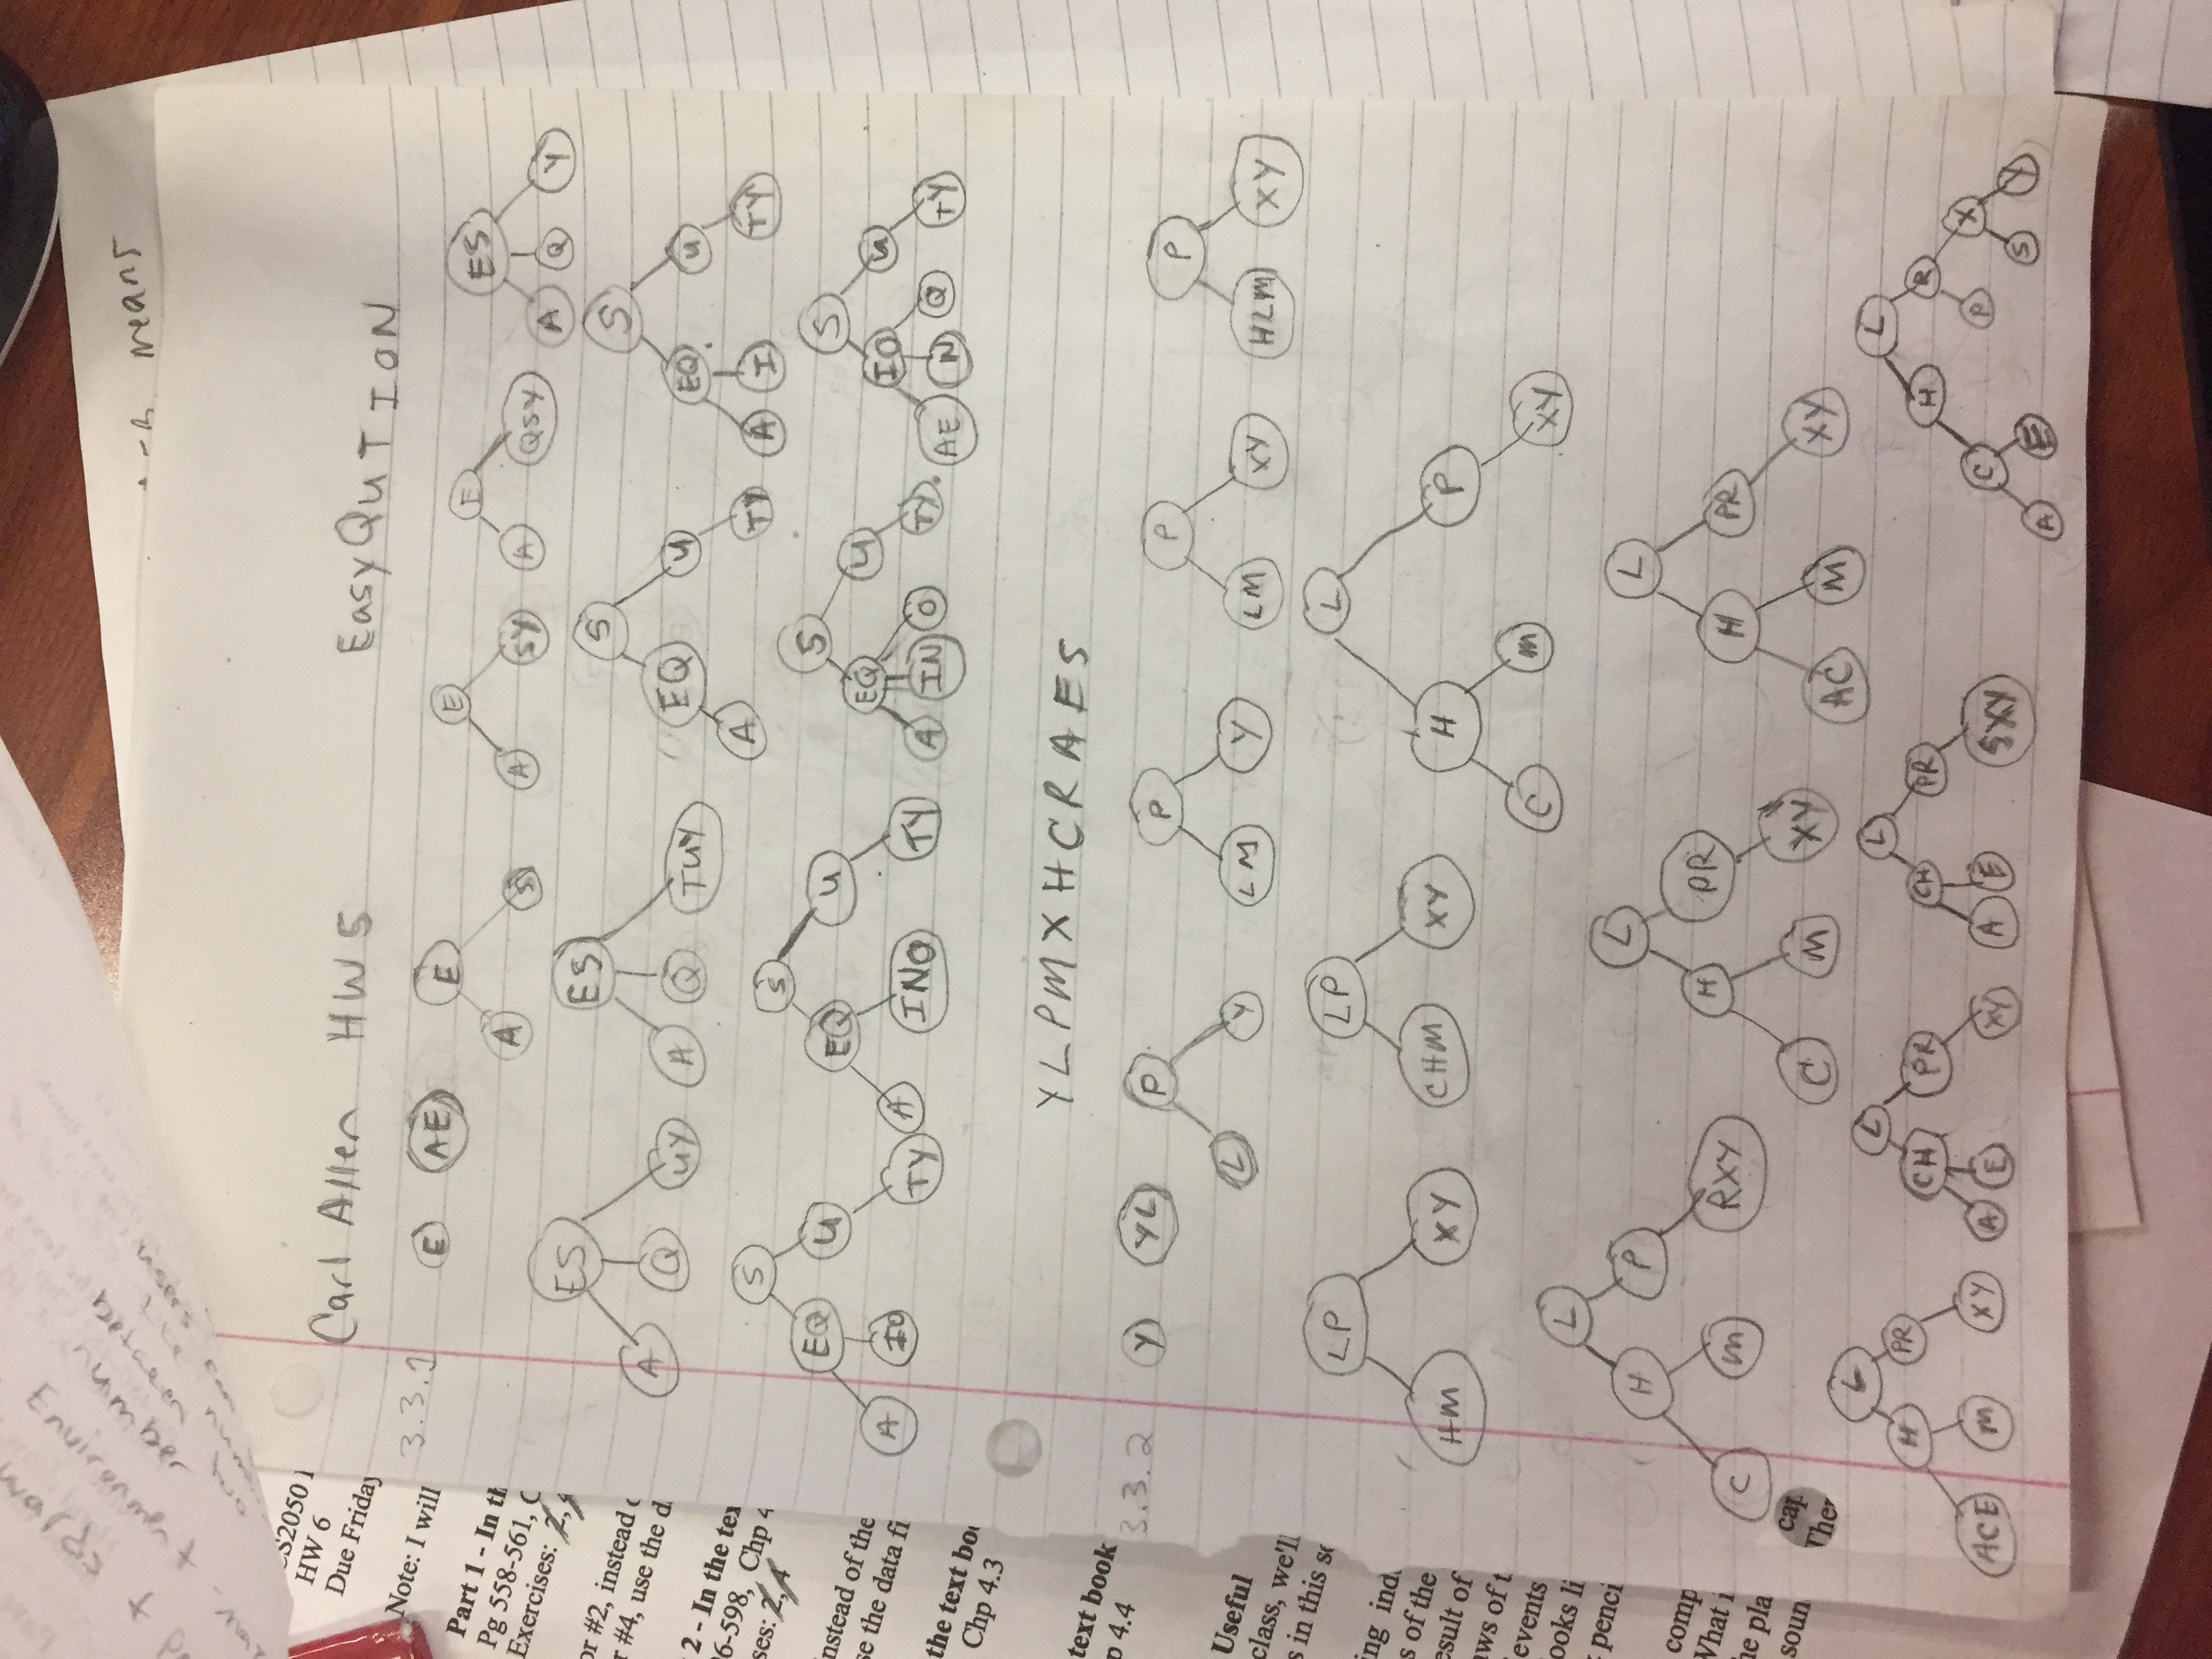 means
CS2050
HW 6
Due Friday
Note: I will
Part 1 - In th
Pg 558-561, C
Exercises: 2, 4
or #2, instead
r #4, use the d
2 - In the tex
6-598, Chp 4
ses: 2, 4
nstead of the
se the data fi
the text boo
Chp 4.3
text book
p 4.4
Useful
class, we'll
s in this se
ing ind
s of the
esult of
aws of t
events
ooks li
penci
comp
What i
he pla
soun
cap
Ther
Carl Allen HW 5 EasyQUTION
3.3.1 E AE E E E ES
A S A SY A QSY A Q Y
ES ES S S
A Q UY A Q TUY EQ U EQ U
A TY A I TY
S S S S
EQ U EQ U EQ U IO U
A IO TY A INO TY A IN O TY AE N Q TY
YLPMXHCRAES
3.3.2 Y YL P P P P
L Y LM Y LM XY HLM XY
LP LP L
HM XY CHM XY H P
C M XY
L L L
H P H PR H PR
C M RXY C M XY AC M XY
L L L L
H PR CH PR CH PR H R
ACE M XY A E XY A E SXY C P X
A E S Y